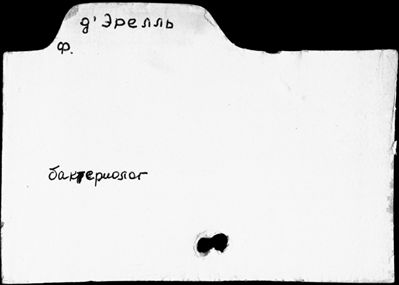 д'Эрелль
Ф.
бактериолог